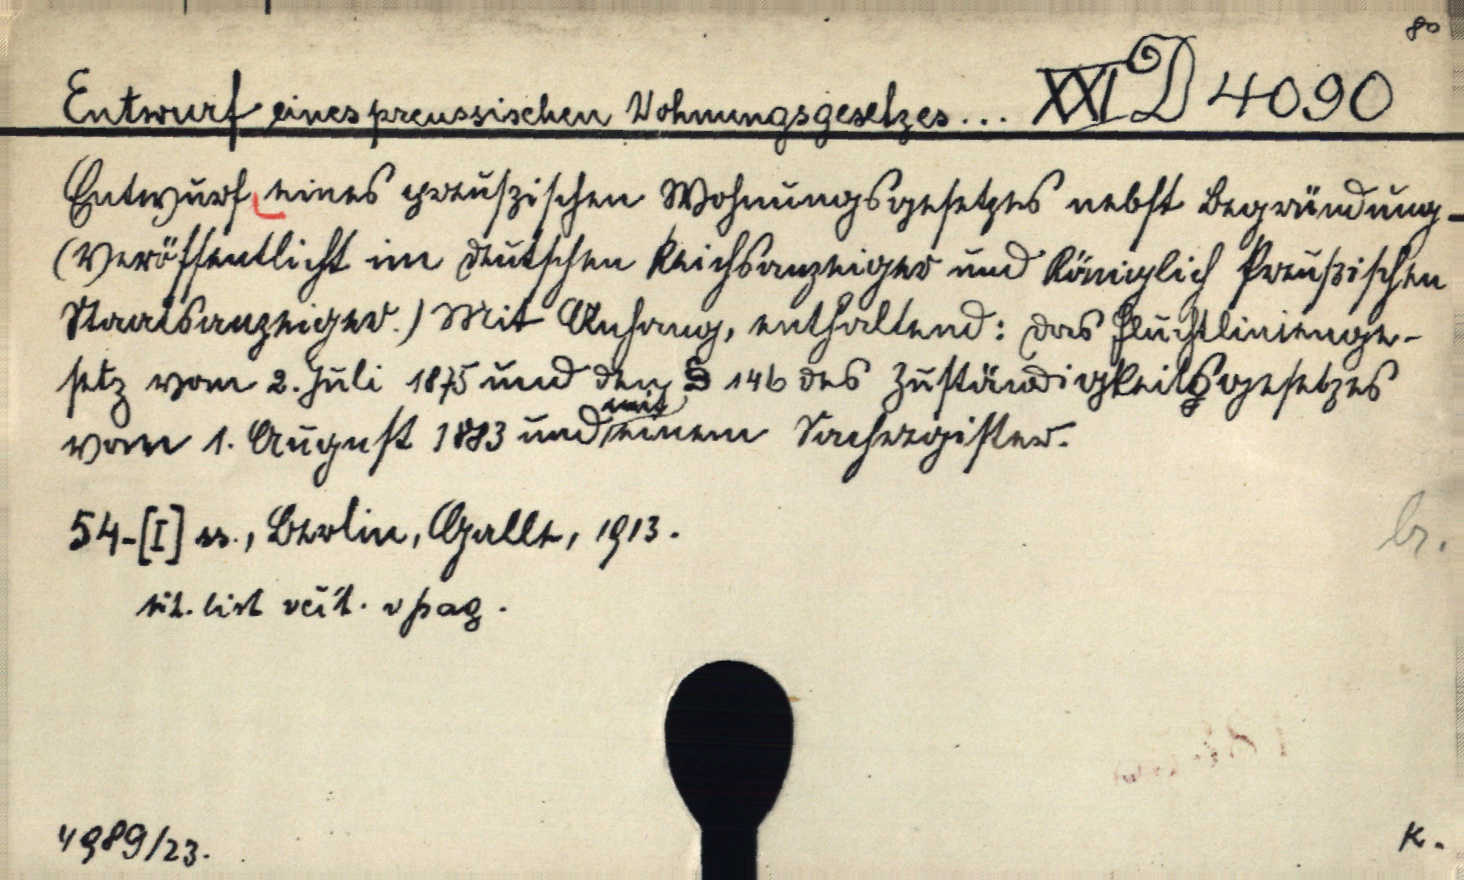 8°
Entwurf eines preussischen Wohnungsgesetzes... XXI D 4090
Entwurf eines preuszischen Wohnungsgesetzes nebst Begründung-
(Veröffentlicht im Deutschen Reichsanzeiger und Königlich Preußischen
Staatsanzeiger.) Mit Anhang, enthaltend: das Fluchtlinienge-
setz vom 2. Juli 1875 und den § 146 des Zuständigkeitsgesetzes
vom 1. August 1883 und mit einem Sachregister.
54-[I] ss., Berlin, Galle, 1913.
tit. list včít. v pag.
br.
4989/23.
K.